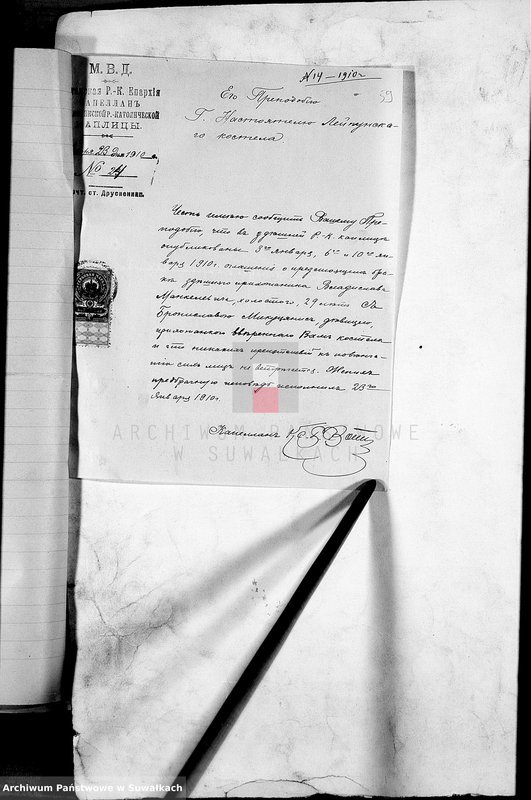 № 14 – 1910 г.
59
М. В. Д.
Р.-К. Епархія
КАПЕЛЛАНЪ
Р.-КАТОЛИЧЕСКОЙ
КАПЛИЦЫ.
23 дня 1910 г.
№ 24
ст. Друскеники.
Его Преподобію
Г. Настоятелю Лейпунска-
го костела
Честь имѣю сообщить Вашему Пре-
подобію, что въ здѣшней Р-К. каплицѣ
опубликованы 3го января, 6го и 10го ян-
варя 1910 г. оглашенія о предстоящемъ бра-
кѣ здѣшняго прихожанина Владислава
холостого, 29 лѣтъ съ
Брониславою дѣвицею,
прихожанкою ввѣреннаго Вамъ костела
и что никакихъ препятствій къ повѣнча-
нію сихъ лицъ не встрѣчается. Женихъ
предбрачную исповѣдь исполнилъ 23го
Января 1910 г.
Капелланъ Кс.
ARCHIWUM PAŃSTWOWE
W SUWAŁKACH
Archiwum Państwowe w Suwałkach